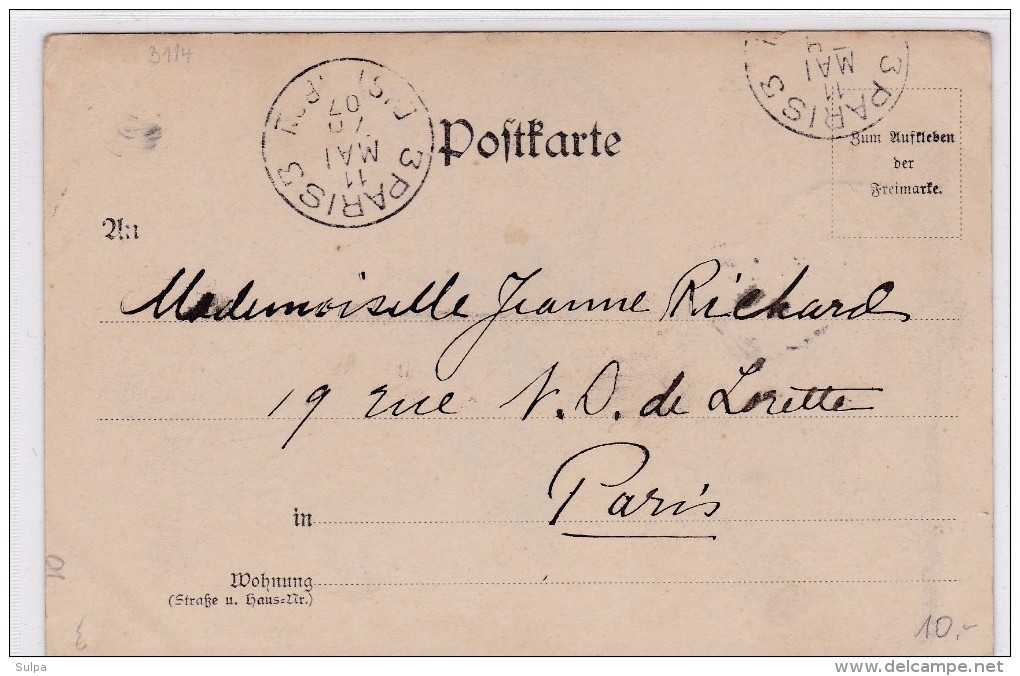 31/4
3 PARIS 3
11
MAI
07
3 PARIS 3
11
MAI
Postkarte
Zum Aufkleben
der
Freimarke.
An
Mademoiselle Jeanne Richard
19 rue N. D. de Lorette
in Paris
Wohnung
(Straße u. Haus=Nr.)
10.-
Sulpa
www.delcampe.net